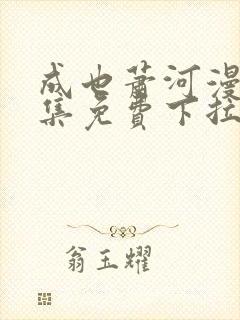 成也萧河漫
集免費下拉
翁玉耀